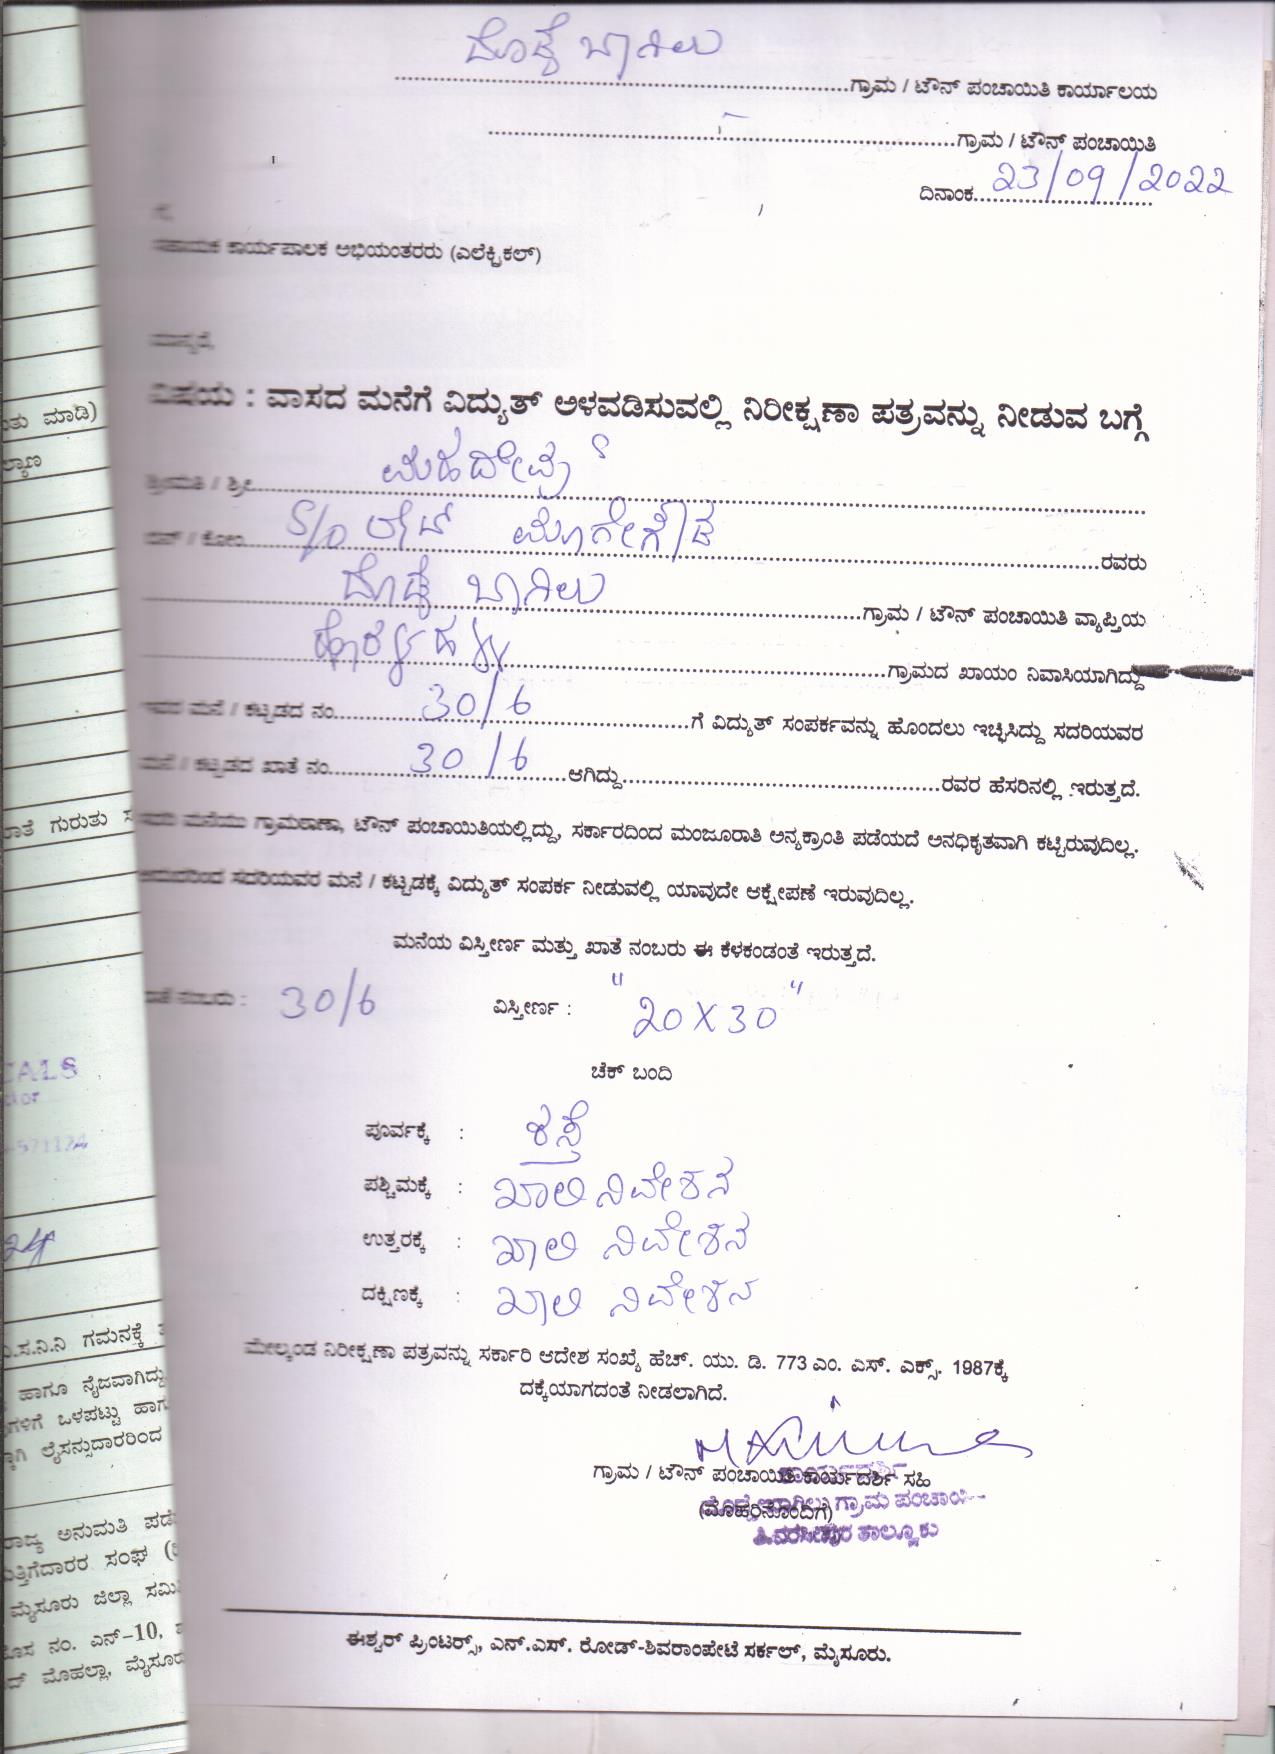 ದೊಡ್ಡೆ ಬಾಗಿಲು
ಗ್ರಾಮ / ಟೌನ್ ಪಂಚಾಯಿತಿ ಕಾರ್ಯಾಲಯ
ಗ್ರಾಮ / ಟೌನ್ ಪಂಚಾಯಿತಿ
ದಿನಾಂಕ 23/09/2022
ಗೆ,
ಸಹಾಯಕ ಕಾರ್ಯಪಾಲಕ ಅಭಿಯಂತರರು (ಎಲೆಕ್ಟ್ರಿಕಲ್)
ಮಾನ್ಯರೆ,
ವಿಷಯ : ವಾಸದ ಮನೆಗೆ ವಿದ್ಯುತ್ ಅಳವಡಿಸುವಲ್ಲಿ ನಿರೀಕ್ಷಣಾ ಪತ್ರವನ್ನು ನೀಡುವ ಬಗ್ಗೆ
ಶ್ರೀಮತಿ / ಶ್ರೀ
ಬಿನ್ / ಕೋಂ S/o ಲೇಟ್ ಮೊಗೇಗೌಡ ರವರು
ದೊಡ್ಡೆ ಬಾಗಿಲು ಗ್ರಾಮ / ಟೌನ್ ಪಂಚಾಯಿತಿ ವ್ಯಾಪ್ತಿಯ
ಗ್ರಾಮದ ಖಾಯಂ ನಿವಾಸಿಯಾಗಿದ್ದು
ಇವರ ಮನೆ / ಕಟ್ಟಡದ ನಂ. 30/6 ಗೆ ವಿದ್ಯುತ್ ಸಂಪರ್ಕವನ್ನು ಹೊಂದಲು ಇಚ್ಛಿಸಿದ್ದು ಸದರಿಯವರ
ಮನೆ / ಕಟ್ಟಡದ ಖಾತೆ ನಂ. 30/6 ಆಗಿದ್ದು ರವರ ಹೆಸರಿನಲ್ಲಿ ಇರುತ್ತದೆ.
ಸದರಿ ಮನೆಯು ಗ್ರಾಮಠಾಣಾ, ಟೌನ್ ಪಂಚಾಯಿತಿಯಲ್ಲಿದ್ದು, ಸರ್ಕಾರದಿಂದ ಮಂಜೂರಾತಿ ಅನ್ಯಕ್ರಾಂತಿ ಪಡೆಯದೆ ಅನಧಿಕೃತವಾಗಿ ಕಟ್ಟಿರುವುದಿಲ್ಲ.
ಆದುದರಿಂದ ಸದರಿಯವರ ಮನೆ / ಕಟ್ಟಡಕ್ಕೆ ವಿದ್ಯುತ್ ಸಂಪರ್ಕ ನೀಡುವಲ್ಲಿ ಯಾವುದೇ ಆಕ್ಷೇಪಣೆ ಇರುವುದಿಲ್ಲ.
ಮನೆಯ ವಿಸ್ತೀರ್ಣ ಮತ್ತು ಖಾತೆ ನಂಬರು ಈ ಕೆಳಕಂಡಂತೆ ಇರುತ್ತದೆ.
ಖಾತೆ ನಂಬರು : 30/6 ವಿಸ್ತೀರ್ಣ : "20X30"
ಚೆಕ್ ಬಂದಿ
ಪೂರ್ವಕ್ಕೆ : ರಸ್ತೆ
ಪಶ್ಚಿಮಕ್ಕೆ : ಖಾಲಿ ನಿವೇಶನ
ಉತ್ತರಕ್ಕೆ : ಖಾಲಿ ನಿವೇಶನ
ದಕ್ಷಿಣಕ್ಕೆ : ಖಾಲಿ ನಿವೇಶನ
ಮೇಲ್ಕಂಡ ನಿರೀಕ್ಷಣಾ ಪತ್ರವನ್ನು ಸರ್ಕಾರಿ ಆದೇಶ ಸಂಖ್ಯೆ ಹೆಚ್. ಯು. ಡಿ. 773 ಎಂ. ಎಸ್. ಎಕ್ಸ್. 1987ಕ್ಕೆ
ದಕ್ಕೆಯಾಗದಂತೆ ನೀಡಲಾಗಿದೆ.
ಗ್ರಾಮ / ಟೌನ್ ಪಂಚಾಯಿತಿ ಕಾರ್ಯದರ್ಶಿ ಸಹಿ
(ಮೊಹರಿನೊಂದಿಗೆ)
ಕಾರ್ಯದರ್ಶಿ
ದೊಡ್ಡ ಬಾಗಿಲು ಗ್ರಾಮ ಪಂಚಾಯಿತಿ
ತಿ.ನರಸೀಪುರ ತಾಲ್ಲೂಕು
ಈಶ್ವರ್ ಪ್ರಿಂಟರ್ಸ್, ಎನ್.ಎಸ್. ರೋಡ್-ಶಿವರಾಂಪೇಟೆ ಸರ್ಕಲ್, ಮೈಸೂರು.
ಮಾಡಿ)
ಗುರುತು
-571124
ಗಮನಕ್ಕೆ
ಹಾಗೂ ನೈಜವಾಗಿದ್ದು
ಒಳಪಟ್ಟು
ಲೈಸನ್ಸುದಾರರಿಂದ
ರಾಜ್ಯ ಅನುಮತಿ
ಗುತ್ತಿಗೆದಾರರ ಸಂಘ
ಮೈಸೂರು ಜಿಲ್ಲಾ
ನಂ. ಎನ್-10,
ಮೊಹಲ್ಲಾ, ಮೈಸೂರು